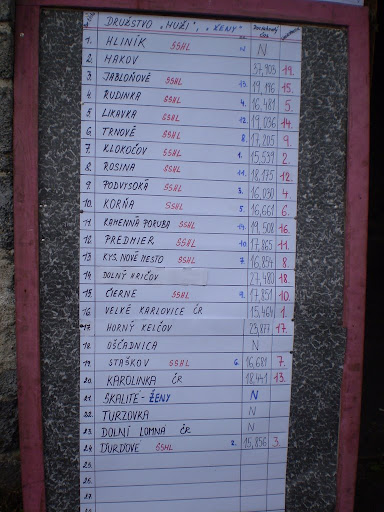 DRUŽSTVO „MUŽI", „ŽENY"
1. HLINÍK SSHL N
2. MAKOV 37,903 19.
3 JABLOŇOVÉ SSHL 13. 19,116 15.
4. RUDINKA SSHL 4. 16,481 5.
5. LIKAVKA SSHL 12. 19,036 14.
6 TRNOVÉ SSHL 8. 17,205 9.
7. KLOKOČOV SSHL 1. 15,539 2.
8. ROSINA SSHL 11. 18,175 12.
9 PODVYSOKÁ SSHL 3. 16,030 4.
10. KORŇA SSHL 5. 16,661 6.
11 KAMENNÁ PORUBA SSHL 14. 19,508 16.
12 PREDMIER SSHL 10. 17,865 11.
13 KYS. NOVÉ MESTO SSHL 7. 16,854 8
14 DOLNÝ HRIČOV 27,483 18.
15 ČIERNE SSHL 9. 17,851 10.
16 VELKÉ KARLOVICE ČR 15,464 1.
17 HORNÝ KELČOV 23,877 17.
18 OŠČADNICA N
19 STAŠKOV SSHL 6. 16,681 7.
20. KAROLINKA ČR 18,441 13.
21 SKALITÉ - ŽENY N
22. TURZOVKA N
23 DOLNÍ LOMNÁ ČR N
24 ĎURĎOVÉ SSHL 2. 15,856 3.
25
26.
27.
28.